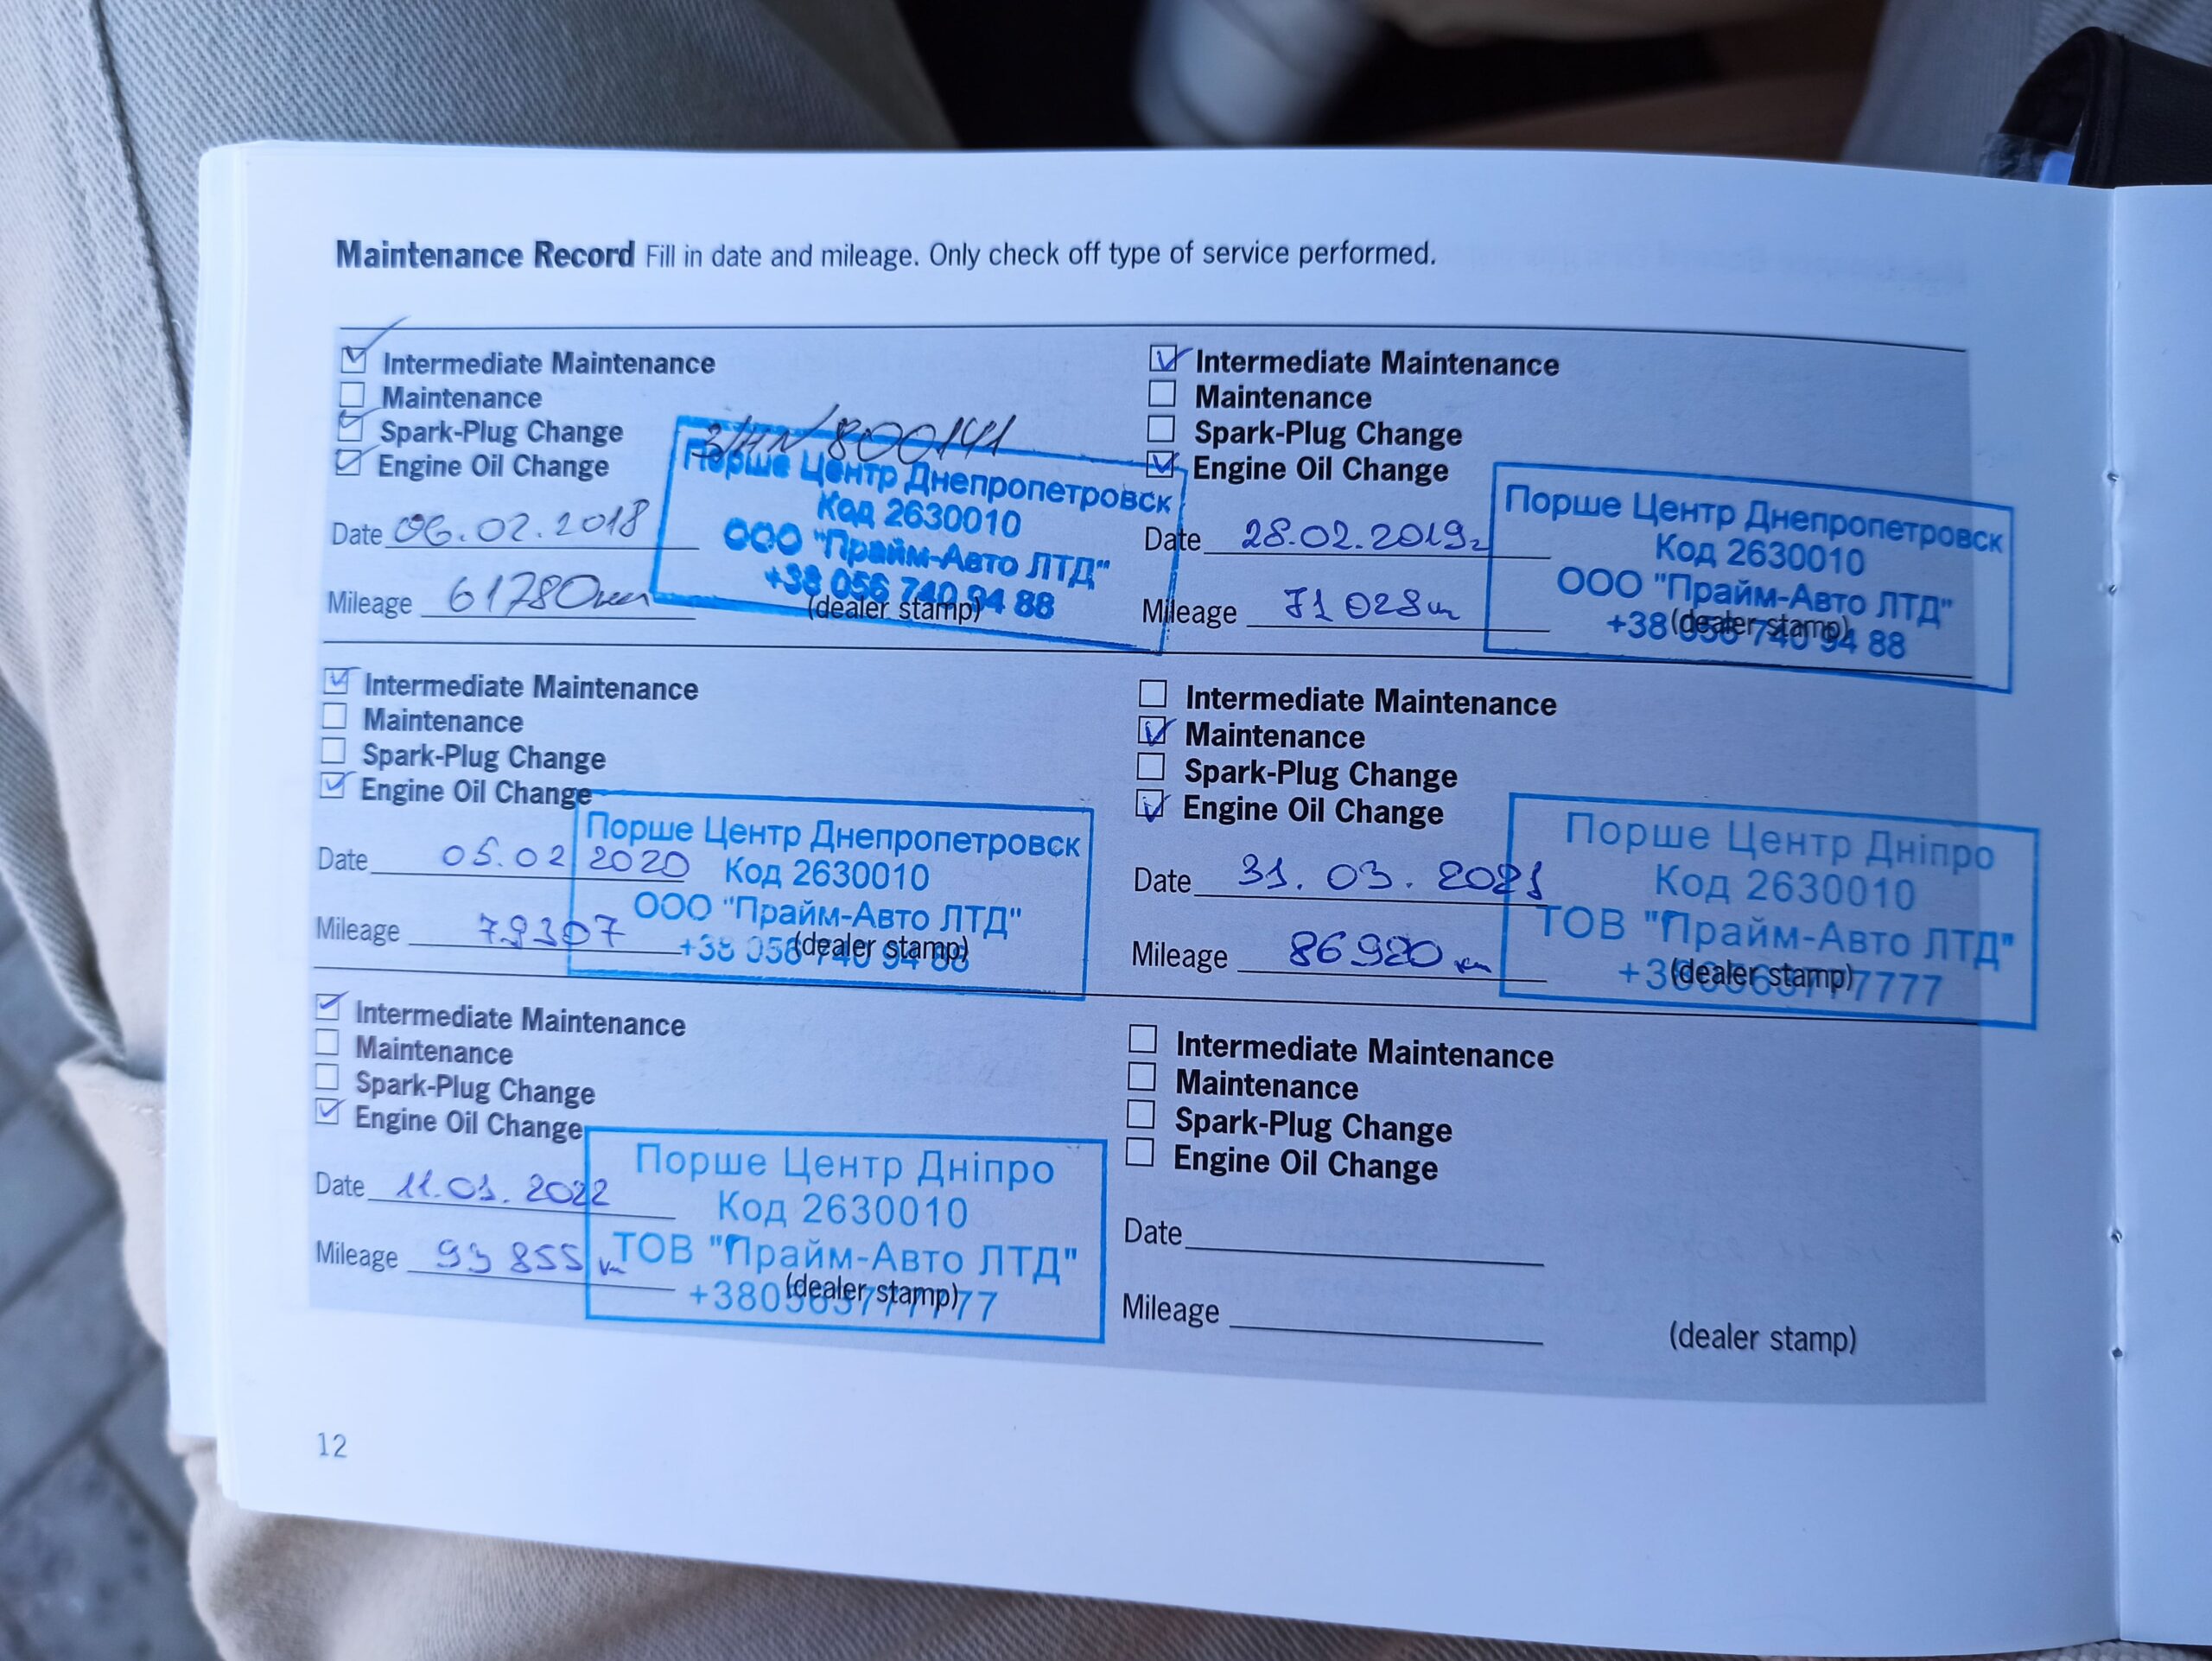 Maintenance Record Fill in date and mileage. Only check off type of service performed.
Intermediate Maintenance
Maintenance
Spark-Plug Change
Engine Oil Change
Date 06.02.2018
Mileage 61780км
З/Н N 800141
Порше Центр Днепропетровск
Код 2630010
ООО "Прайм-Авто ЛТД"
+38 056 740 94 88
(dealer stamp)
Intermediate Maintenance
Maintenance
Spark-Plug Change
Engine Oil Change
Date 28.02.2019г
Mileage 71 028км
Порше Центр Днепропетровск
Код 2630010
ООО "Прайм-Авто ЛТД"
+38 056 740 94 88
(dealer stamp)
Intermediate Maintenance
Maintenance
Spark-Plug Change
Engine Oil Change
Date 05.02 2020
Mileage 79307
Порше Центр Днепропетровск
Код 2630010
ООО "Прайм-Авто ЛТД"
+38 056 740 94 88
(dealer stamp)
Intermediate Maintenance
Maintenance
Spark-Plug Change
Engine Oil Change
Date 31.03.2021
Mileage 86920 км
Порше Центр Дніпро
Код 2630010
ТОВ "Прайм-Авто ЛТД"
+380563777777
(dealer stamp)
Intermediate Maintenance
Maintenance
Spark-Plug Change
Engine Oil Change
Date 11.01.2022
Mileage 93 855 км
Порше Центр Дніпро
Код 2630010
ТОВ "Прайм-Авто ЛТД"
+380563777777
(dealer stamp)
Intermediate Maintenance
Maintenance
Spark-Plug Change
Engine Oil Change
Date
Mileage
(dealer stamp)
12